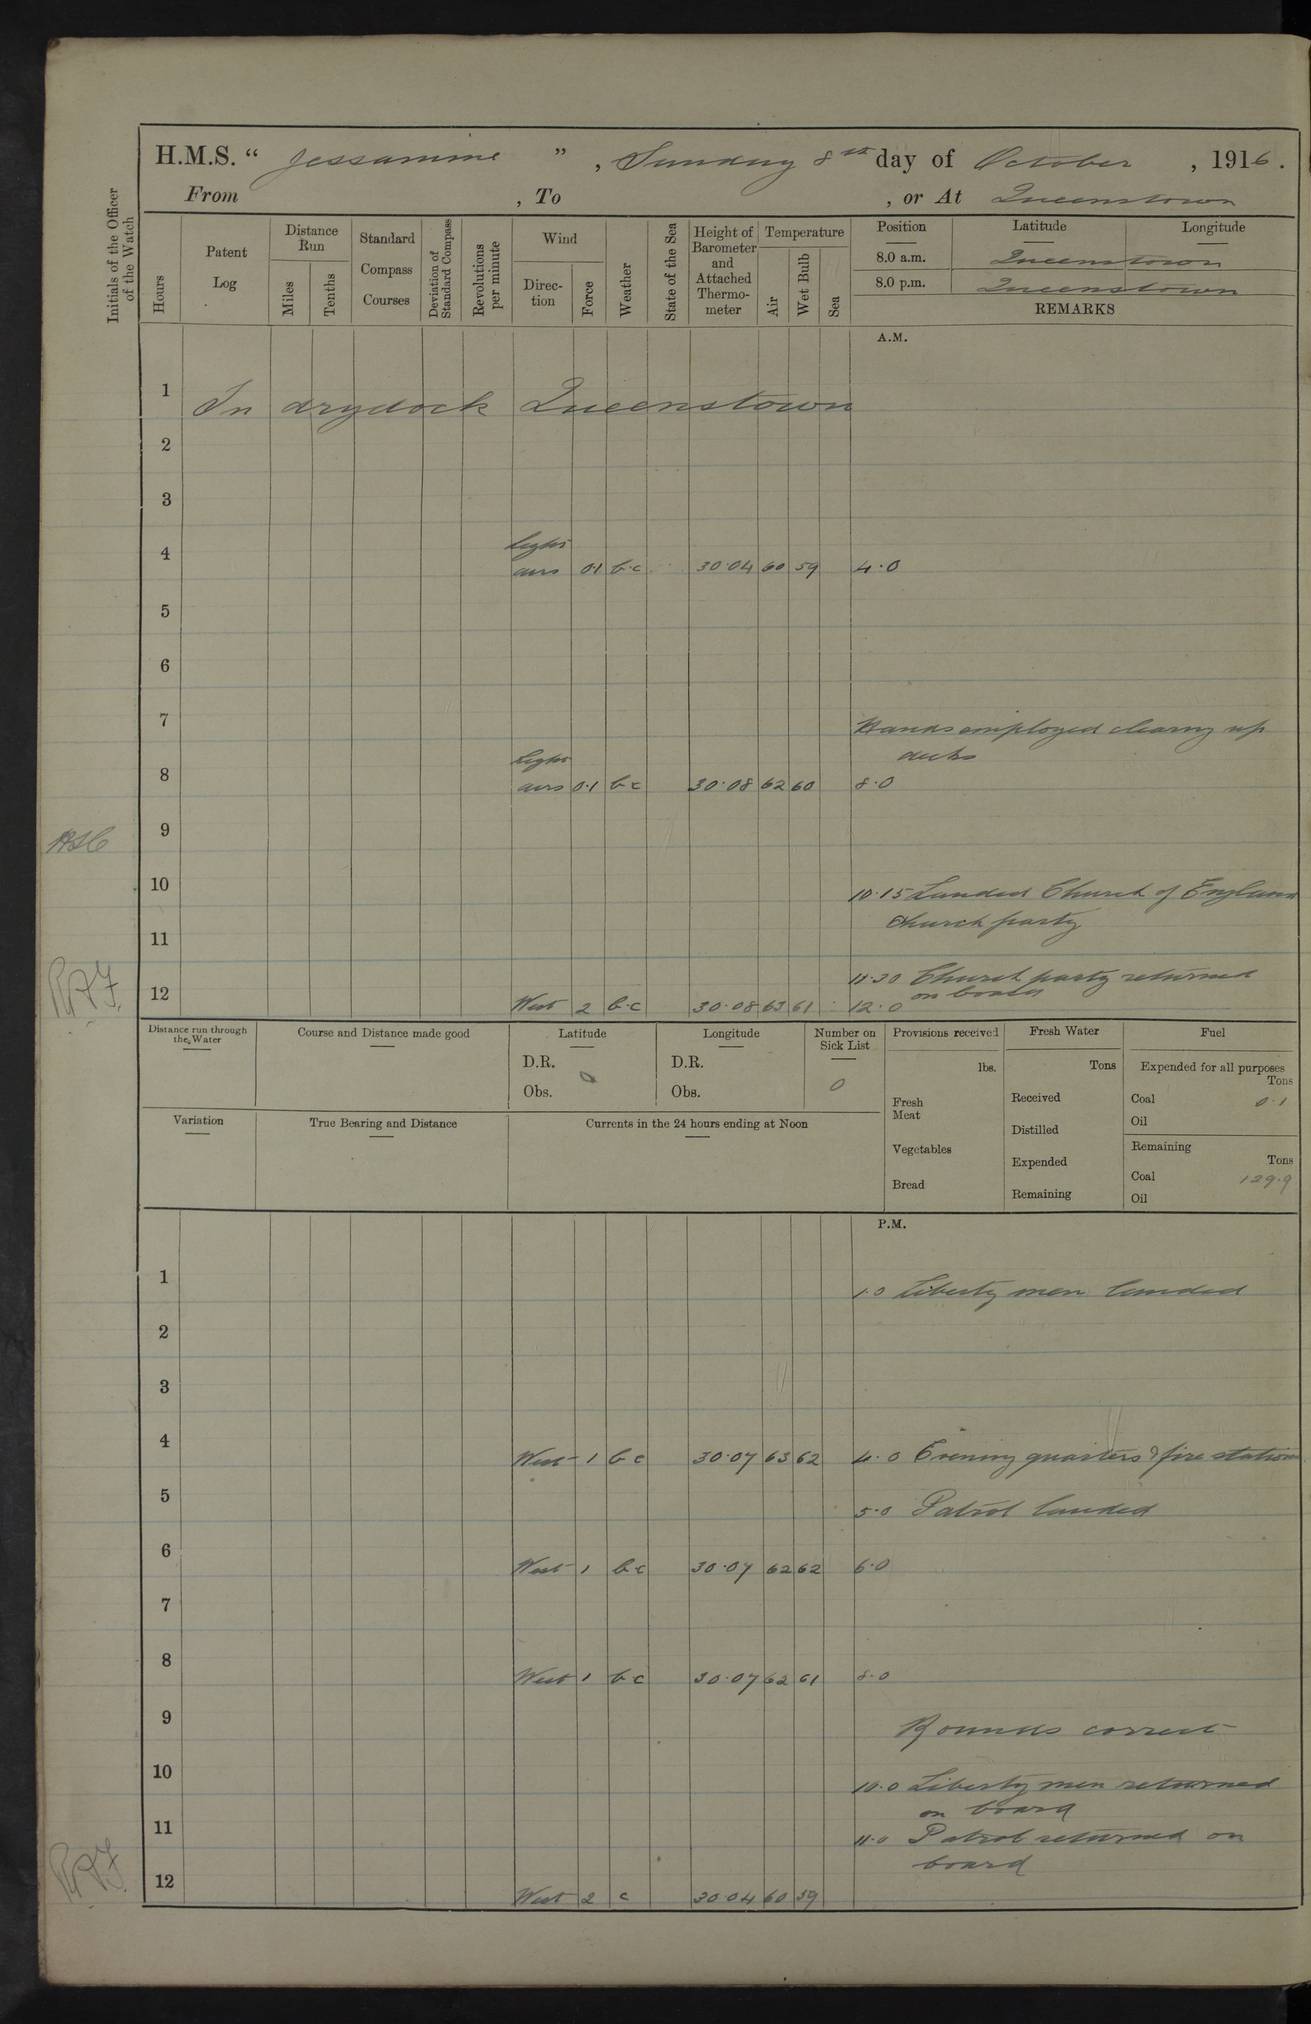 H.M.S. " Jessamine ", Sunday 8th day of October, 1916.
From , To , or At Queenstown
Initials of the Officer of the Watch
Hours
Patent Log
Distance Run
Miles
Tenths
Standard Compass Courses
Deviation of Standard Compass
Revolutions per minute
Wind
Direction
Force
Weather
State of the Sea
Height of Barometer and Attached Thermometer
Temperature
Air
Wet Bulb
Sea
Position Latitude Longitude
8.0 a.m. Queenstown
8.0 p.m. Queenstown
REMARKS
A.M.
1 In drydock Queenstown
2
3
4 light airs 0.1 b.c 30.04 60 59 4.0
5
6
7 Hands employed clearing up
decks
8 light airs 0.1 b.c 30.08 62 60 8.0
9
10 10.15 Landed Church of England
Church party
11
11.30 Church party returned
on board
12 West 2 b.c 30.08 63 61 12.0
RAF
Distance run through the Water
Course and Distance made good
Latitude
D.R.
Obs.
0
Longitude
D.R.
Obs.
Number on Sick List
0
Provisions received
lbs.
Fresh Meat
Vegetables
Bread
Fresh Water
Tons
Received
Distilled
Expended
Remaining
Fuel
Expended for all purposes
Tons
Coal 0.1
Oil
Remaining
Tons
Coal 129.9
Oil
Variation
True Bearing and Distance
Currents in the 24 hours ending at Noon
P.M.
1 1.0 Liberty men landed
2
3
4 West 1 b c 30.07 63 62 4.0 Evening quarters & fire stations
5 5.0 Patrol landed
6 West 1 b.c 30.07 62 62 6.0
7
8 West 1 b.c 30.07 62 61 8.0
9 Rounds correct
10 10.0 Liberty men returned
on board
11 11.0 Patrol returned on
board
12 West 2 c 30.04 60 59
RAF